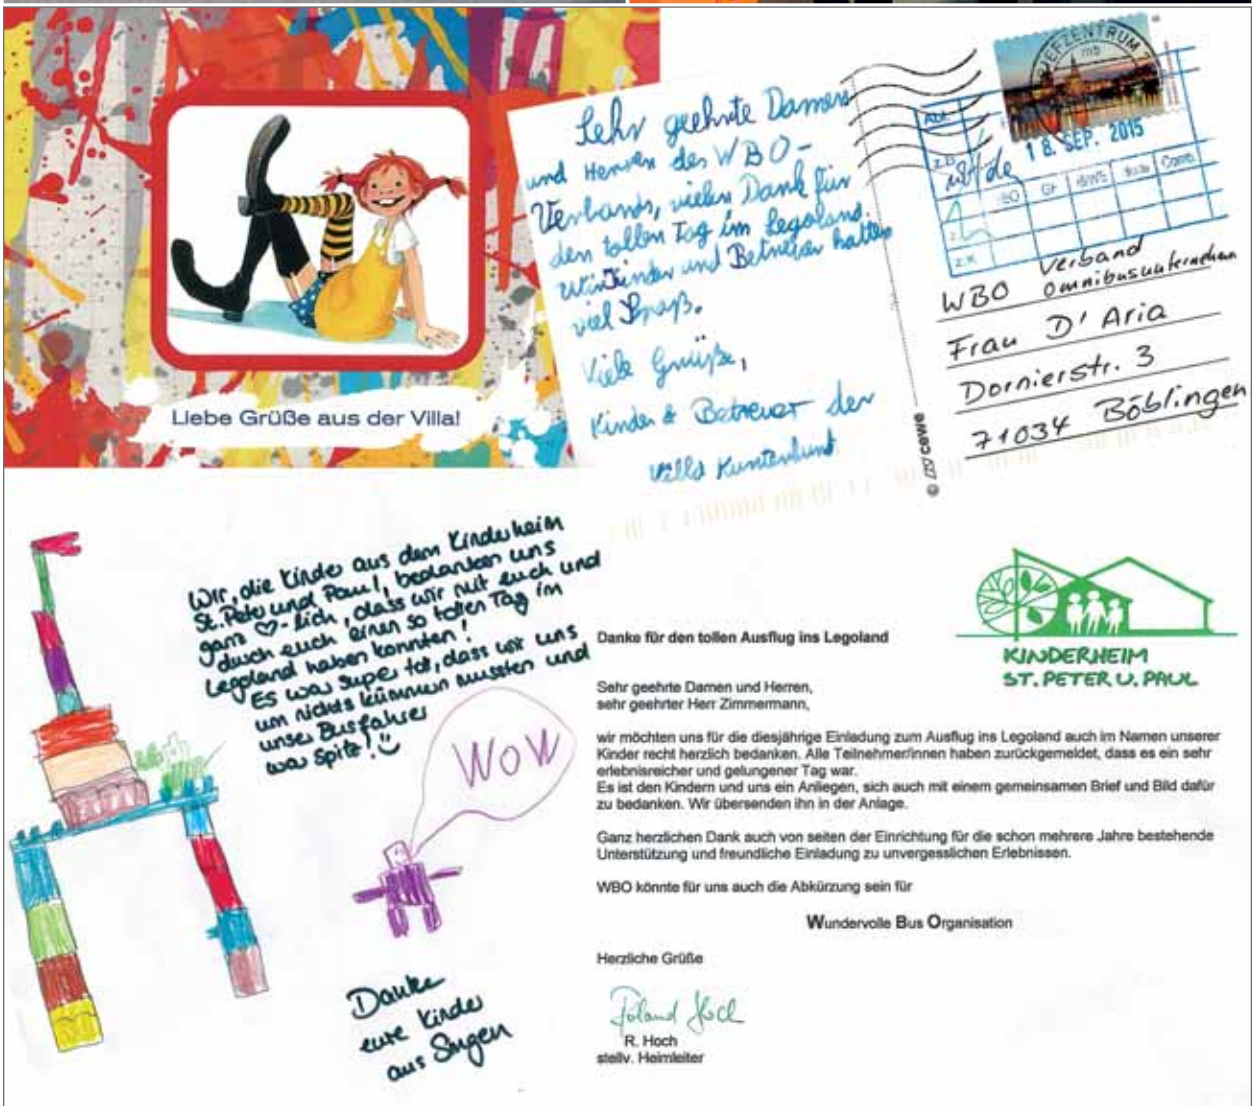 Liebe Grüße aus der Villa!
Sehr geehrte Damen
und Herren des WBO-
Verbands, vielen Dank für
den tollen Tag im Legoland.
Wir Kinder und Betreuer hatten
viel Spaß.
Viele Grüße,
Kinder & Betreuer der
Villa Kunterbunt
BRIEFZENTRUM
mb
18. SEP. 2015
WBO Verband
Omnibusunternehmen
Frau D'Aria
Dornierstr. 3
71034 Böblingen
© cewe
Wir, die Kinder aus dem Kinderheim
St. Peter und Paul, bedanken uns
ganz ♡-lich, dass wir mit euch und
durch euch einen so tollen Tag im
Legoland haben konnten!
Es war super toll, dass wir uns
um nichts kümmern mussten und
unser Busfahrer
war spitze!
WOW
Danke
eure Kinder
aus Singen
KINDERHEIM
ST. PETER U. PAUL
Danke für den tollen Ausflug ins Legoland
Sehr geehrte Damen und Herren,
sehr geehrter Herr Zimmermann,
wir möchten uns für die diesjährige Einladung zum Ausflug ins Legoland auch im Namen unserer
Kinder recht herzlich bedanken. Alle Teilnehmer/innen haben zurückgemeldet, dass es ein sehr
erlebnisreicher und gelungener Tag war.
Es ist den Kindern und uns ein Anliegen, sich auch mit einem gemeinsamen Brief und Bild dafür
zu bedanken. Wir übersenden ihn in der Anlage.
Ganz herzlichen Dank auch von seiten der Einrichtung für die schon mehrere Jahre bestehende
Unterstützung und freundliche Einladung zu unvergesslichen Erlebnissen.
WBO könnte für uns auch die Abkürzung sein für
Wundervolle Bus Organisation
Herzliche Grüße
Roland Hoch
R. Hoch
stellv. Heimleiter